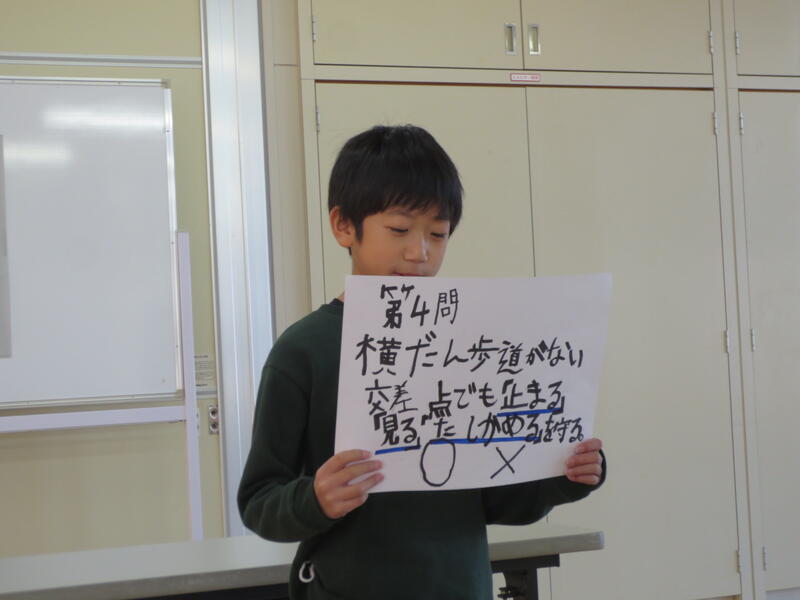 第4問
横だん歩道がない
交差点でも「止まる」
「見る」「たしかめる」を守る。
○ ×